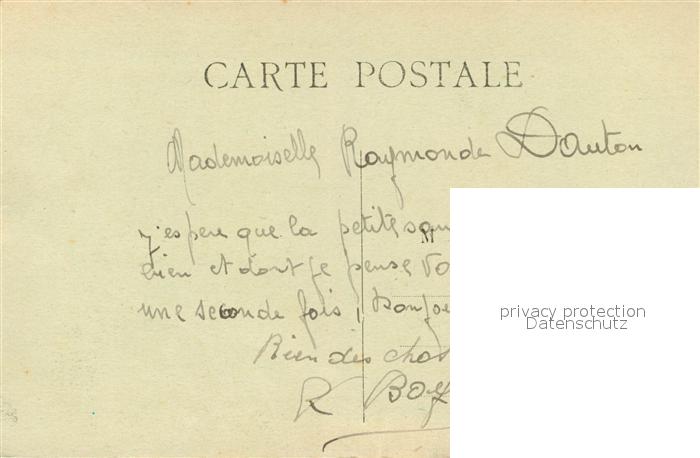 CARTE POSTALE
Mademoiselle Raymonde Dauton
j'espere que la petite
M
bien et dont je pense
une seconde fois,
Bien des chos
R Boy
privacy protection
Datenschutz